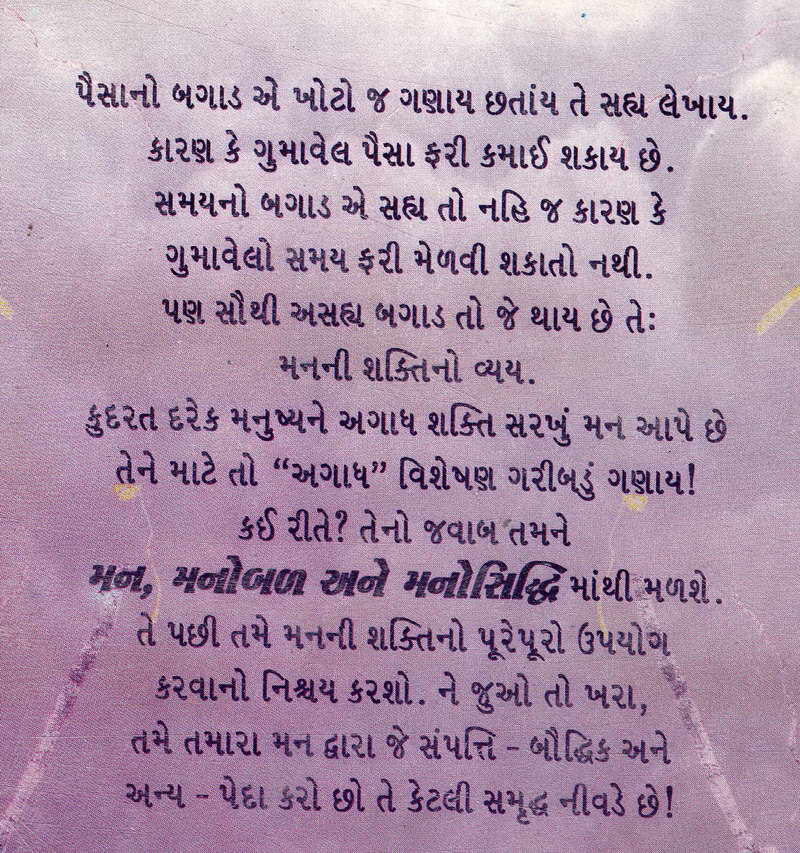 પૈસાનો બગાડ એ ખોટો જ ગણાય છતાંય તે સહ્ય લેખાય.
કારણ કે ગુમાવેલ પૈસા ફરી કમાઈ શકાય છે.
સમયનો બગાડ એ સહ્ય તો નહિ જ કારણ કે
ગુમાવેલો સમય ફરી મેળવી શકાતો નથી.
પણ સૌથી અસહ્ય બગાડ તો જે થાય છે તેઃ
મનની શક્તિનો વ્યય.
કુદરત દરેક મનુષ્યને અગાધ શક્તિ સરખું મન આપે છે
તેને માટે તો “અગાધ” વિશેષણ ગરીબડું ગણાય!
કઈ રીતે? તેનો જવાબ તમને
મન, મનોબળ અને મનોસિદ્ધિ માંથી મળશે.
તે પછી તમે મનની શક્તિનો પૂરેપૂરો ઉપયોગ
કરવાનો નિશ્ચય કરશો. ને જુઓ તો ખરા,
તમે તમારા મન દ્વારા જે સંપત્તિ - બૌદ્ધિક અને
અન્ય - પેદા કરો છો તે કેટલી સમૃદ્ધ નીવડે છે!